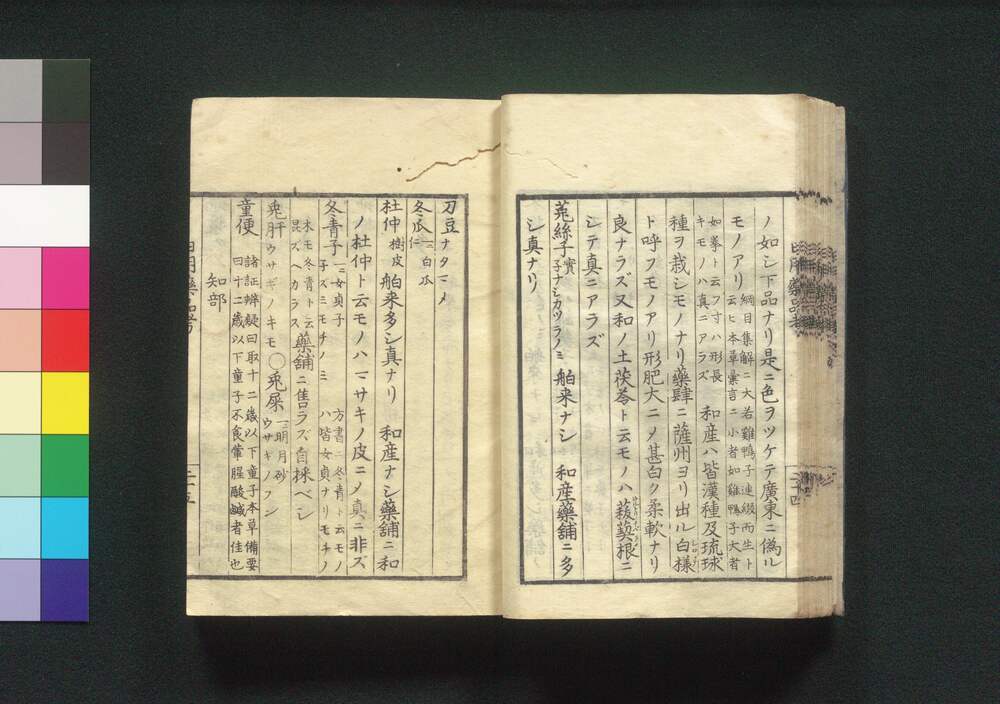 ノ如シ下品ナリ是ニ色ヲツケテ廣東ニ偽ル
モノアリ 綱目集解ニ大若雞鴨子連綴而生ト
云ヒ本草彙言ニ小者如雞鴨子大者
如拳ト云フ寸ハ形長
キモノハ真ニアラズ 和産ハ皆漢種及琉球
種ヲ栽シモノナリ藥肆ニ薩州ヨリ出ル白様
ト呼フモノアリ形肥大ニメ甚白ク柔軟ナリ
良ナラズ又和ノ土茯苓ト云モノハ菝葜根ニ
シテ真ニアラズ
菟絲子 實
子ナシカツラノミ 舶来ナシ 和産藥舗ニ多
シ真ナリ
刀豆 ナタマメ
冬瓜仁 一ニ白瓜
杜仲 樹皮 舶来多シ真ナリ 和産ナシ藥舗ニ和
ノ杜仲ト云モノハマサキノ皮ニメ真ニ非ズ
冬青子 一ニ女貞子
子ズミモチノミ 方書ニ冬青ト云モノ
ハ皆女貞ナリモチノ
木モ冬青ト云
混ズヘカラス 藥舗ニ售ラズ自採ベシ
兎肝 ウサギノキモ ○兎屎 一ニ明月砂
ウサキノフン
童便 諸証辨疑曰取十二歳以下童子本草備要
曰十二歳以下童子不食葷腥酸鹹者佳也
知部